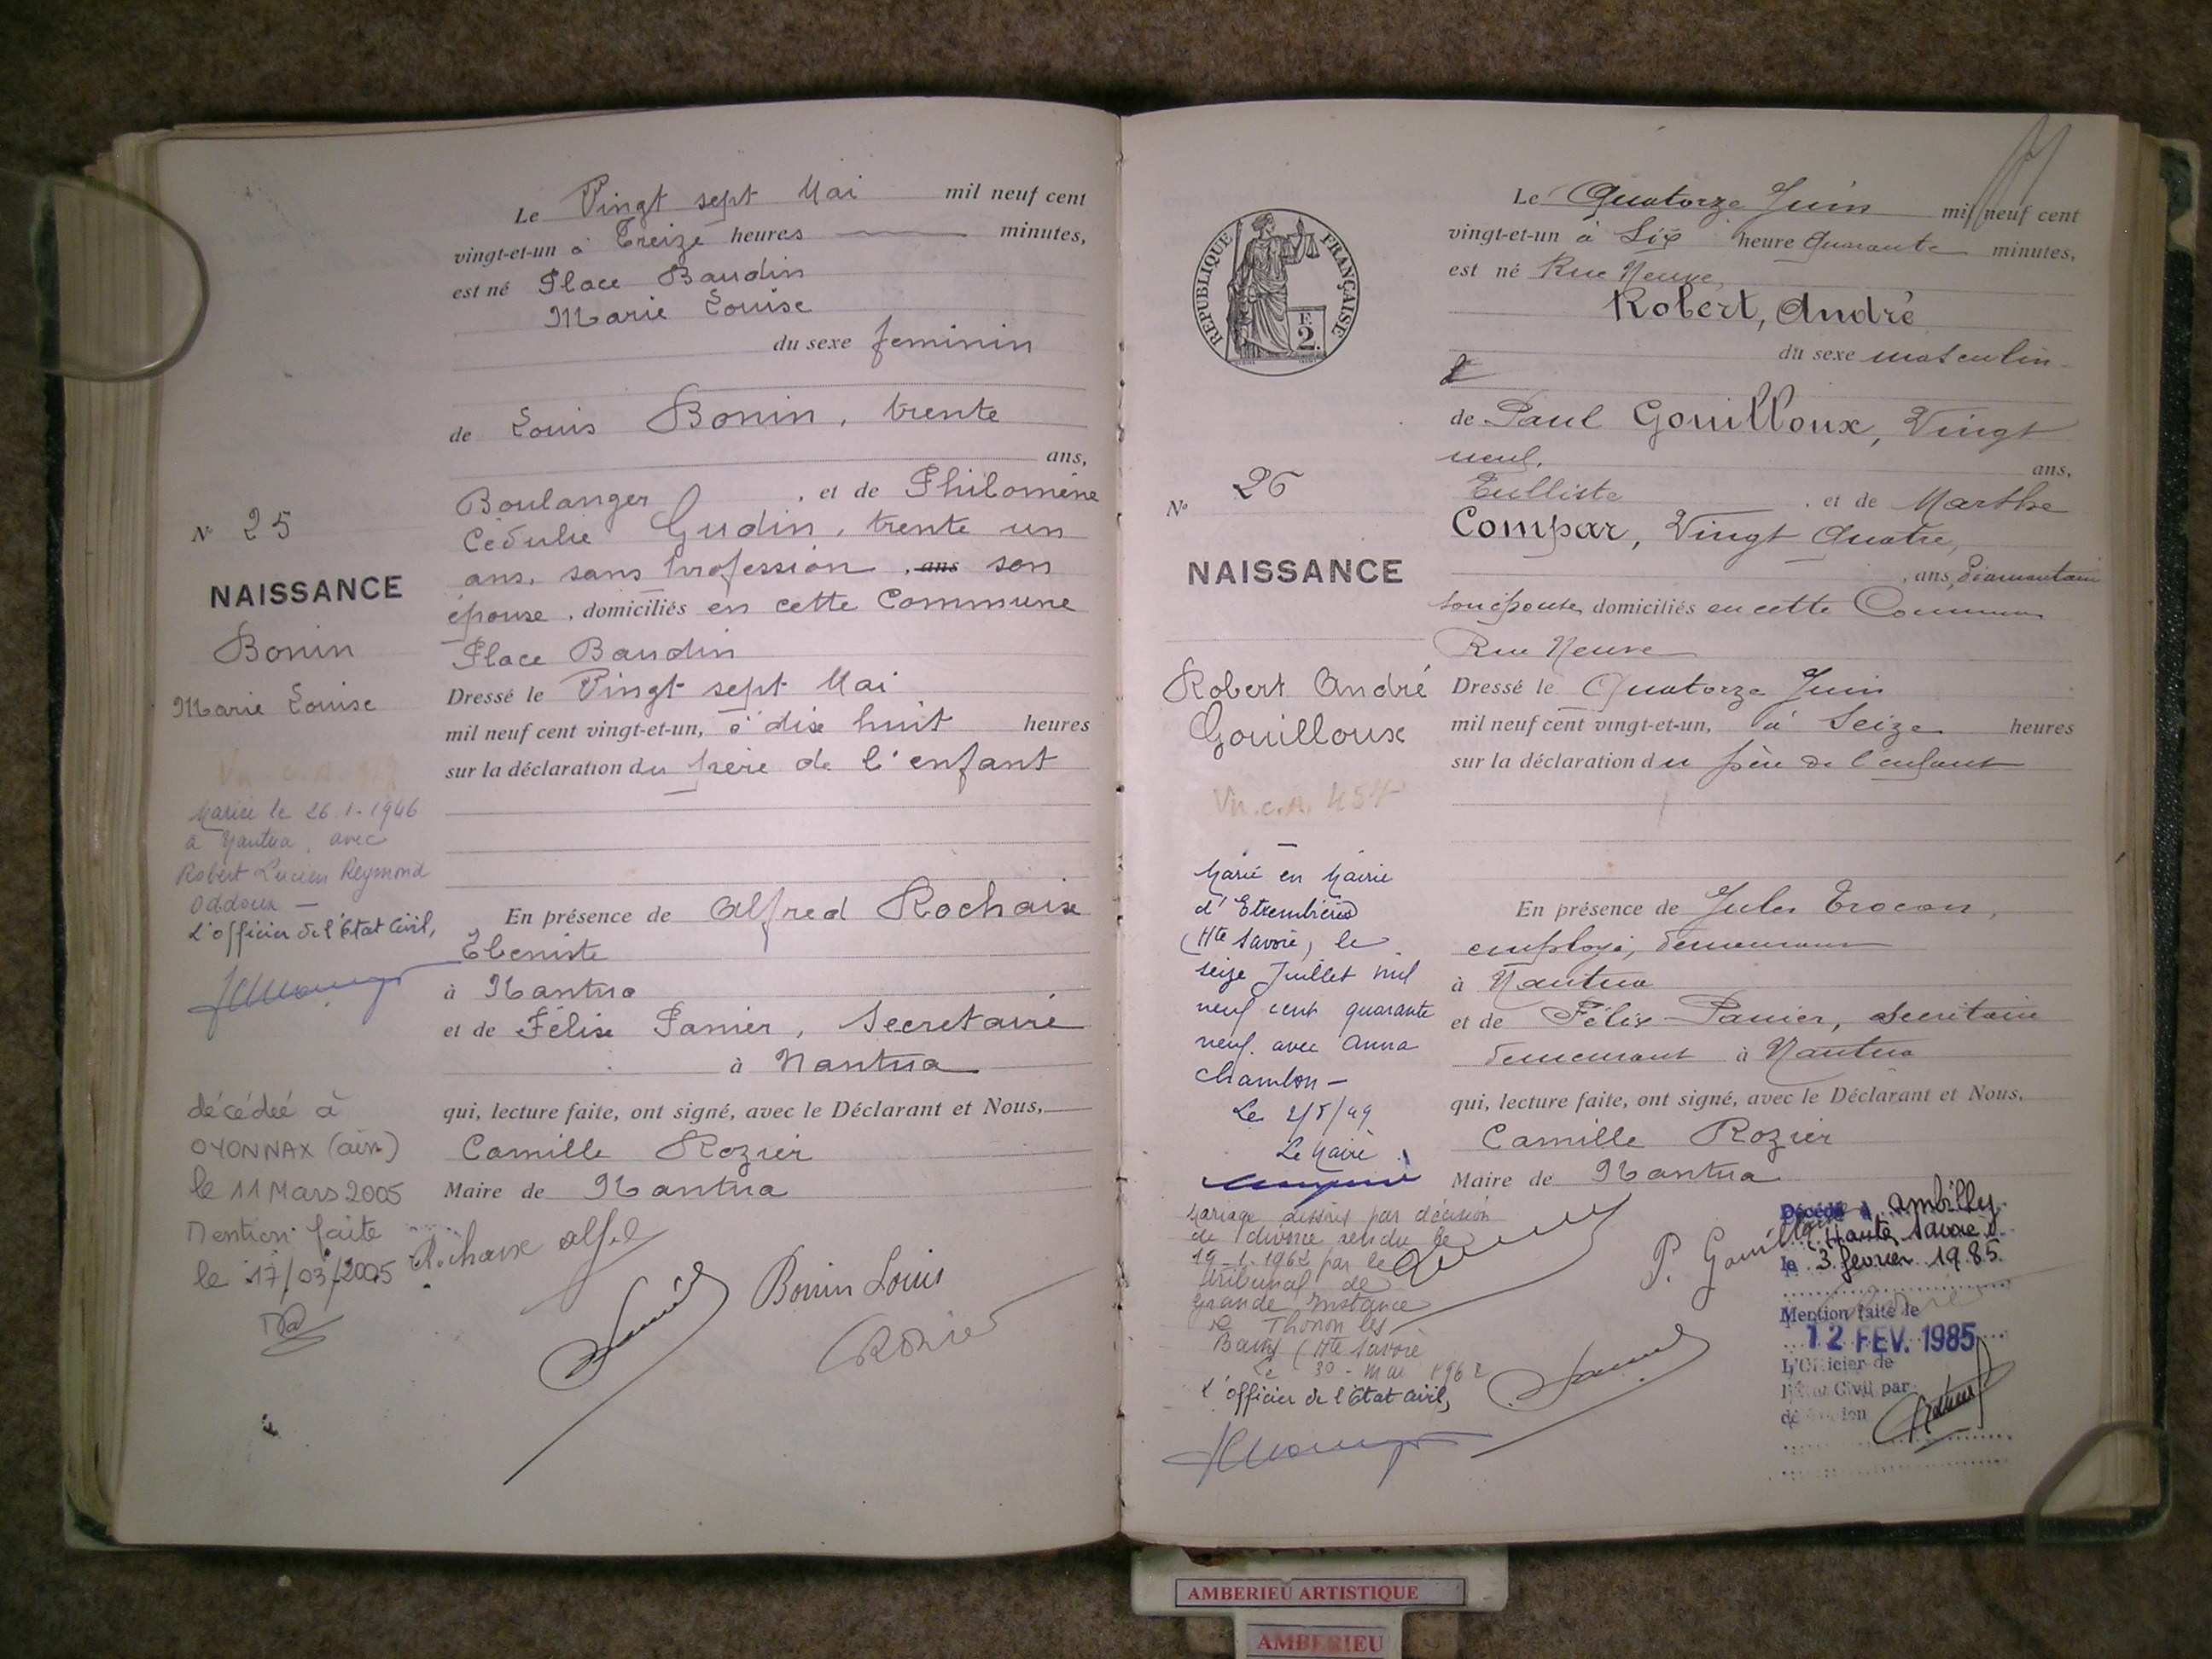 Le Vingt sept Mai mil neuf cent
vingt-et-un à Treize heures minutes,
est né Place Baudin
Marie Louise
du sexe feminin
de Louis Bonin, trente
ans,
Boulanger, et de Philomène
Gudin, trente un
ans, sans profession, ans son
épouse, domiciliés en cette Commune
Place Baudin
Dressé le Vingt sept Mai
mil neuf cent vingt-et-un, à dix huit heures
sur la déclaration du père de l'enfant
En présence de Alfred Rochaix
Ébeniste
à Nantua
et de Félix Panier, Secretaire
à Nantua
qui, lecture faite, ont signé, avec le Déclarant et Nous,
Camille Rozier
Maire de Nantua
Bonin Louis
Rozier
N° 25
NAISSANCE
Bonin
Marie Louise
Mariée le 26.1.1946
à Nantua, avec
Robert Lucien Reymond
Oddoux —
L'officier de l'Etat Civil,
décédée à
OYONNAX (ain)
le 11 Mars 2005
Mention faite
le 17/03/2005
RÉPUBLIQUE FRANÇAISE
F.
2.
N° 26
NAISSANCE
Robert André
Gouilloux
Marié en Mairie
d'Etrembières
(Hte Savoie) le
seize Juillet mil
neuf cent quarante
neuf avec Anna
Chambon —
Le Maire
Mariage dissous par décision
de divorce rendu le
19-1-1962 par le
tribunal de
Grande Instance
de Thonon les
Bains (Hte Savoie
Le 30 - Mai 1962
L'officier de l'Etat Civil,
Le Quatorze Juin mil neuf cent
vingt-et-un à Six heure Quarante minutes,
est né Rue Neuve,
Robert, André
du sexe masculin
de Paul Gouilloux, Vingt
neuf, ans,
Tulliste, et de Marthe
Compar, Vingt Quatre,
, ans,
son épouse, domiciliés en cette Commune
Rue Neuve
Dressé le Quatorze Juin
mil neuf cent vingt-et-un, à Seize heures
sur la déclaration du père de l'enfant
En présence de Jules
employé, demeurant
à Nantua
et de Félix Panier, secrétaire
demeurant à Nantua
qui, lecture faite, ont signé, avec le Déclarant et Nous,
Camille Rozier
Maire de Nantua
P. Gouilloux
Décédé à Ambilly
(Haute Savoie)
le 3 février 1985.
Mention faite le
12 FEV. 1985
L'Officier de
l'Etat Civil par
AMBERIEU ARTISTIQUE
AMBERIEU